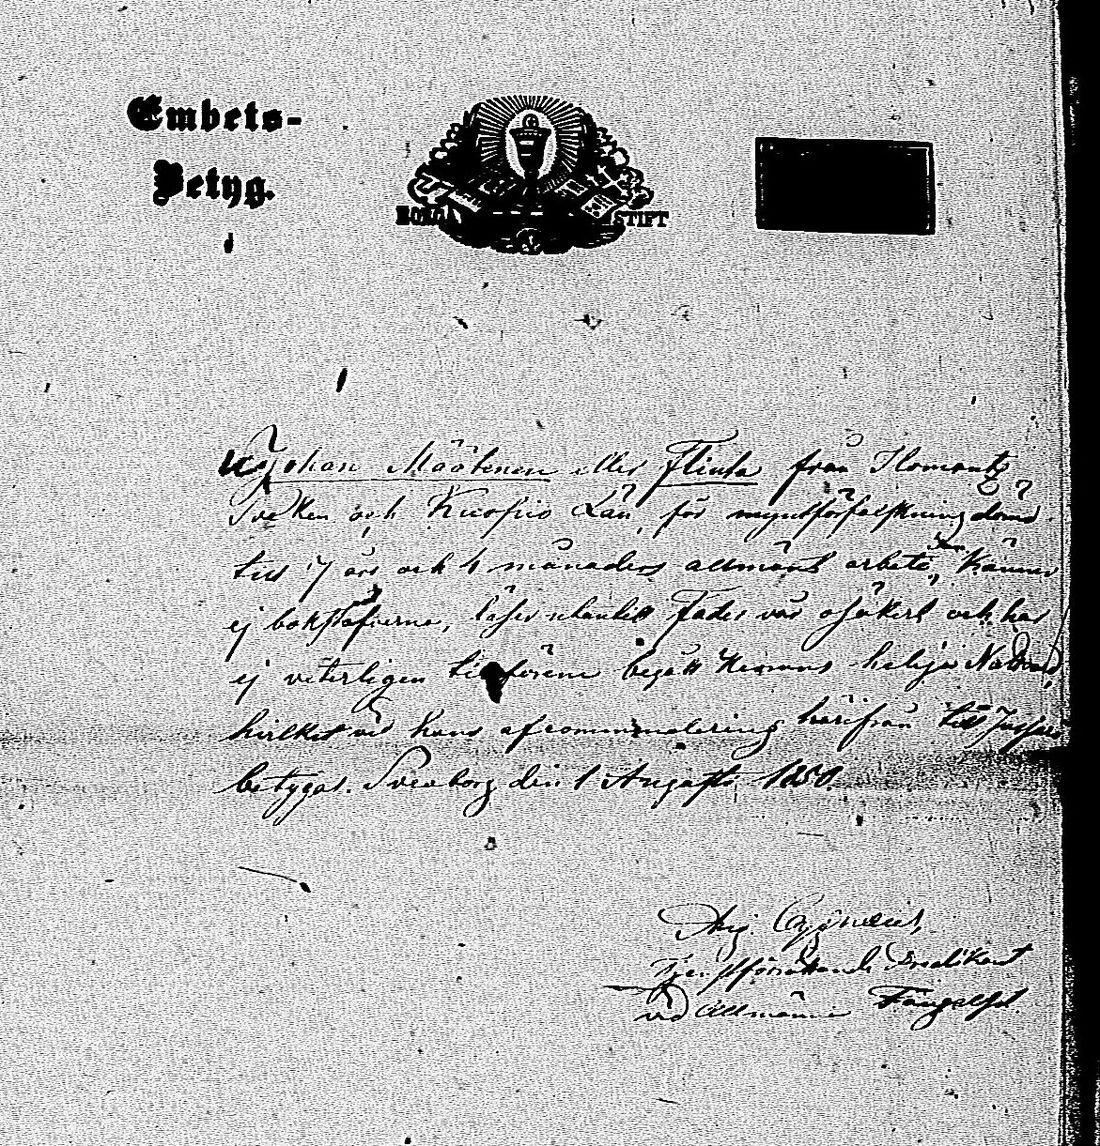 Embets-
Betyg.
BORGÅ STIFT
Johan Määttänen eller Flinta från Ilomants
Socken och Kuopio Län, för myntförfalskning dömd
till 7 års och 4 månaders allmänt arbete, Känner
ej bokstäfverna, läser utantill Fader vår osäkert och har
ej veterligen tillförene begått Herrans heliga Nattvard,
hvilket vid hans afrommunalering härifrån till
betygas. Sveaborg den 1 Augusti 1850.
Aug Cygnæus,
Tjenstförrättande Predikant
vid Allmänna Fängelset.